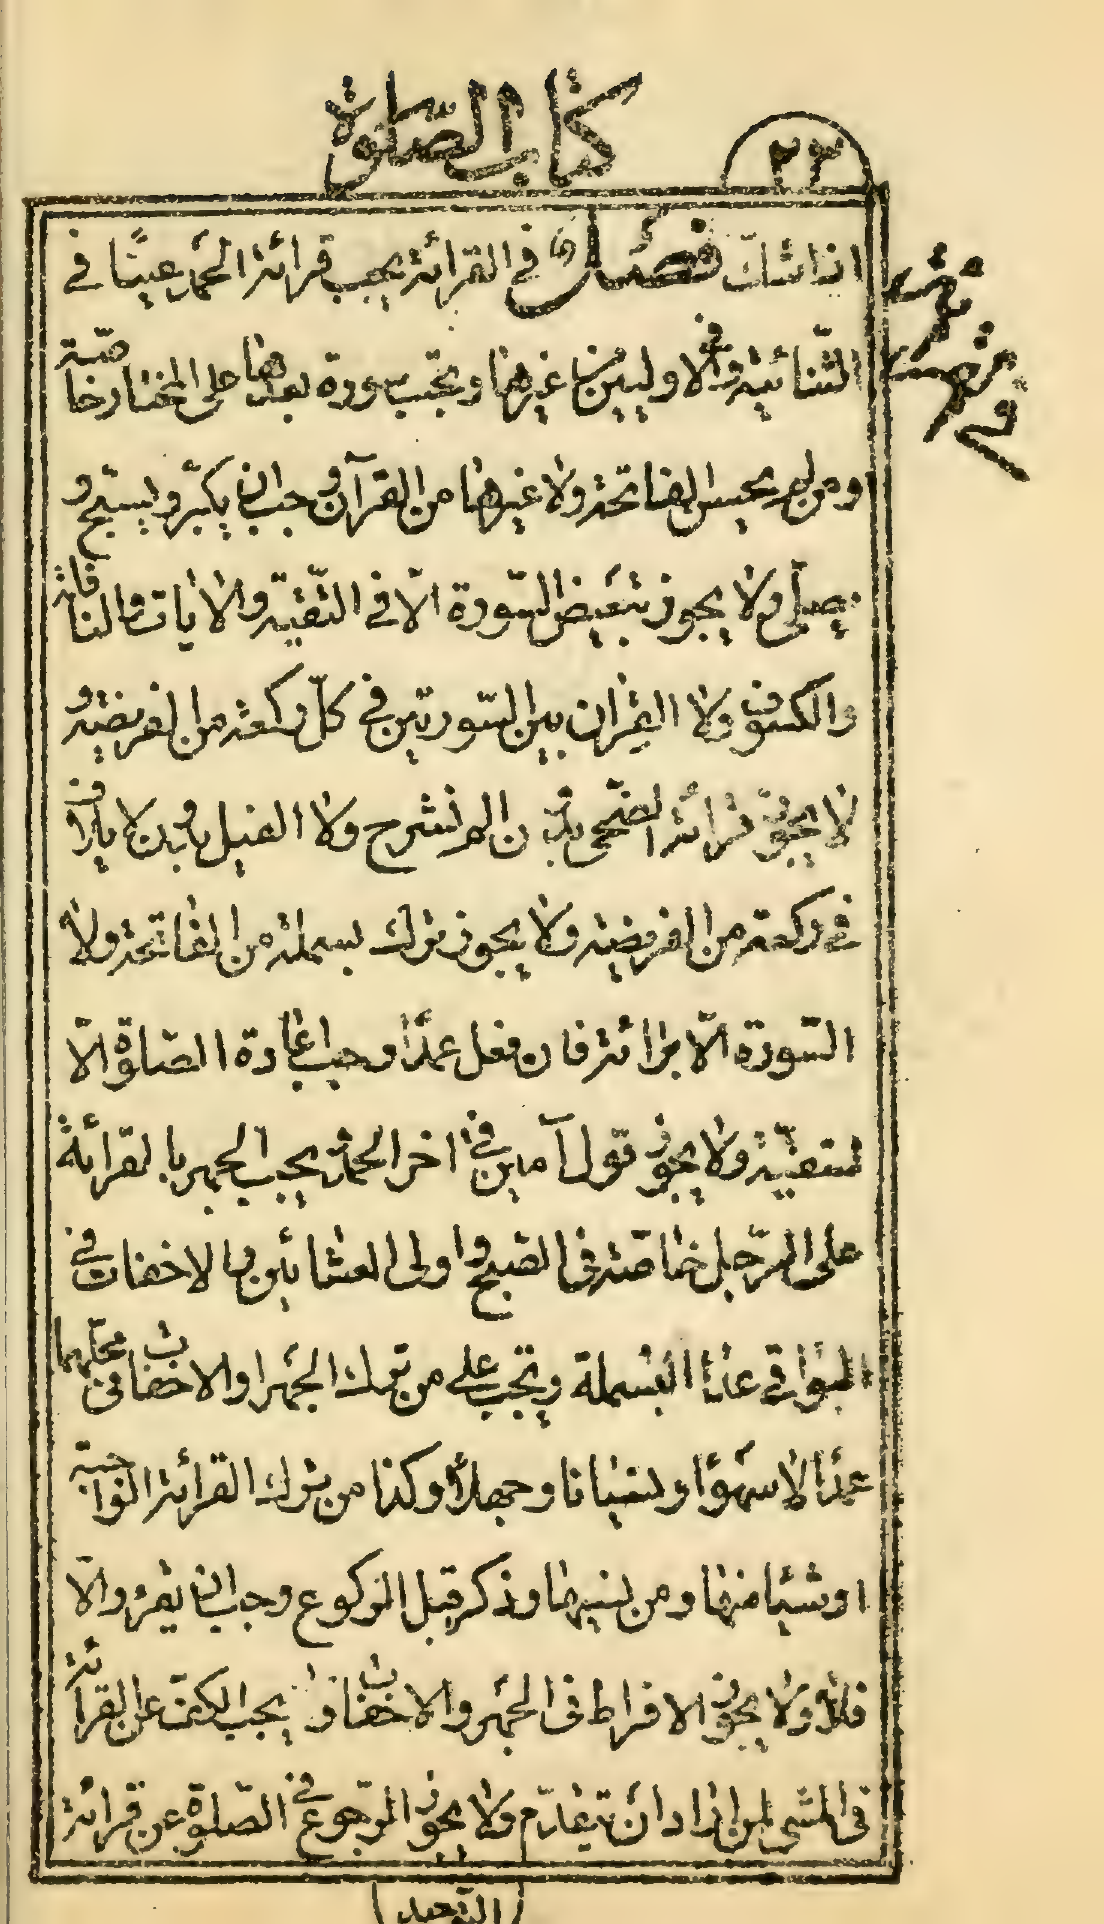 كتاب الصلوة
٢٣
اذا شك فصل في القرائة يجب قرائة الحمد عينا في
الثنائية وفي الاوليين من غيرها وتجب سورة بعدها على المختار خاصة
ومن لم يحسن الفاتحة ولا غيرها من القرآن وجب ان يكبر ويسبح و
يصلي ولا يجوز تبعيض السورة الا في التقية والايات والنافلة
والكسوف ولا القران بين السورتين في كل ركعة من الفريضة و
لا يجوز قرائة الضحى بدون الم نشرح ولا الفيل بدون لايلاف
في ركعة من الفريضة ولا يجوز ترك بسملة من الفاتحة ولا
السورة الا برائة فان فعل عمدا وجب اعادة الصلوة الا
لتقية ولا يجوز قول آمين في اخر الحمد ويجب الجهر بالقرائة
على الرجل خاصة في الصبح واولى العشائين والاخفات في
البواقي عدا البسملة وتجب على من ترك الجهر والاخفات في محلهما
عمدا لا سهوا ونسيانا وجهلا وكذا من ترك القرائة الواجبة
او شيئا منها ومن نسيها وذكر قبل الركوع وجب ان يقرء والا
فلا ولا يجوز الافراط في الجهر والاخفات ويجب الكف عن القرائة
في المشي لمن اراد ان يتقدم ولا يجوز الرجوع في الصلوة عن قرائة
(التوحيد)